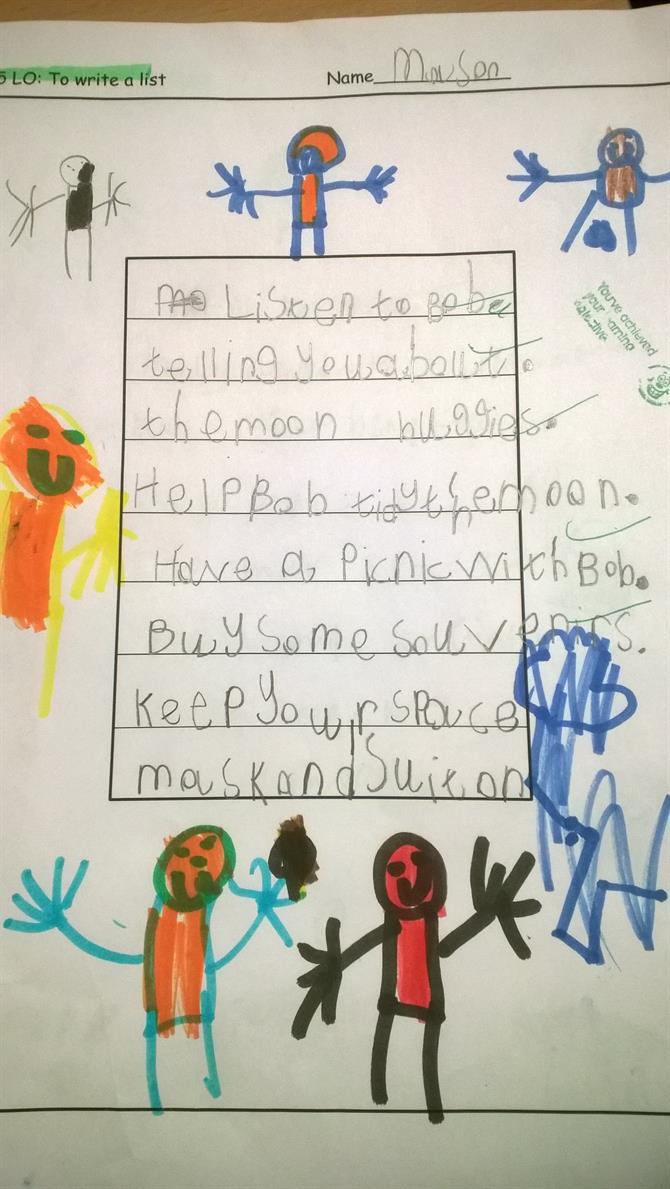 5 LO: To write a list
Name
Listen to Bob
telling you about.
the moon buggies.
Help Bob tidy the moon.
Have a Picnic with Bob.
Buy some souvenirs.
Keep your space
mask and suit on
You've achieved
your